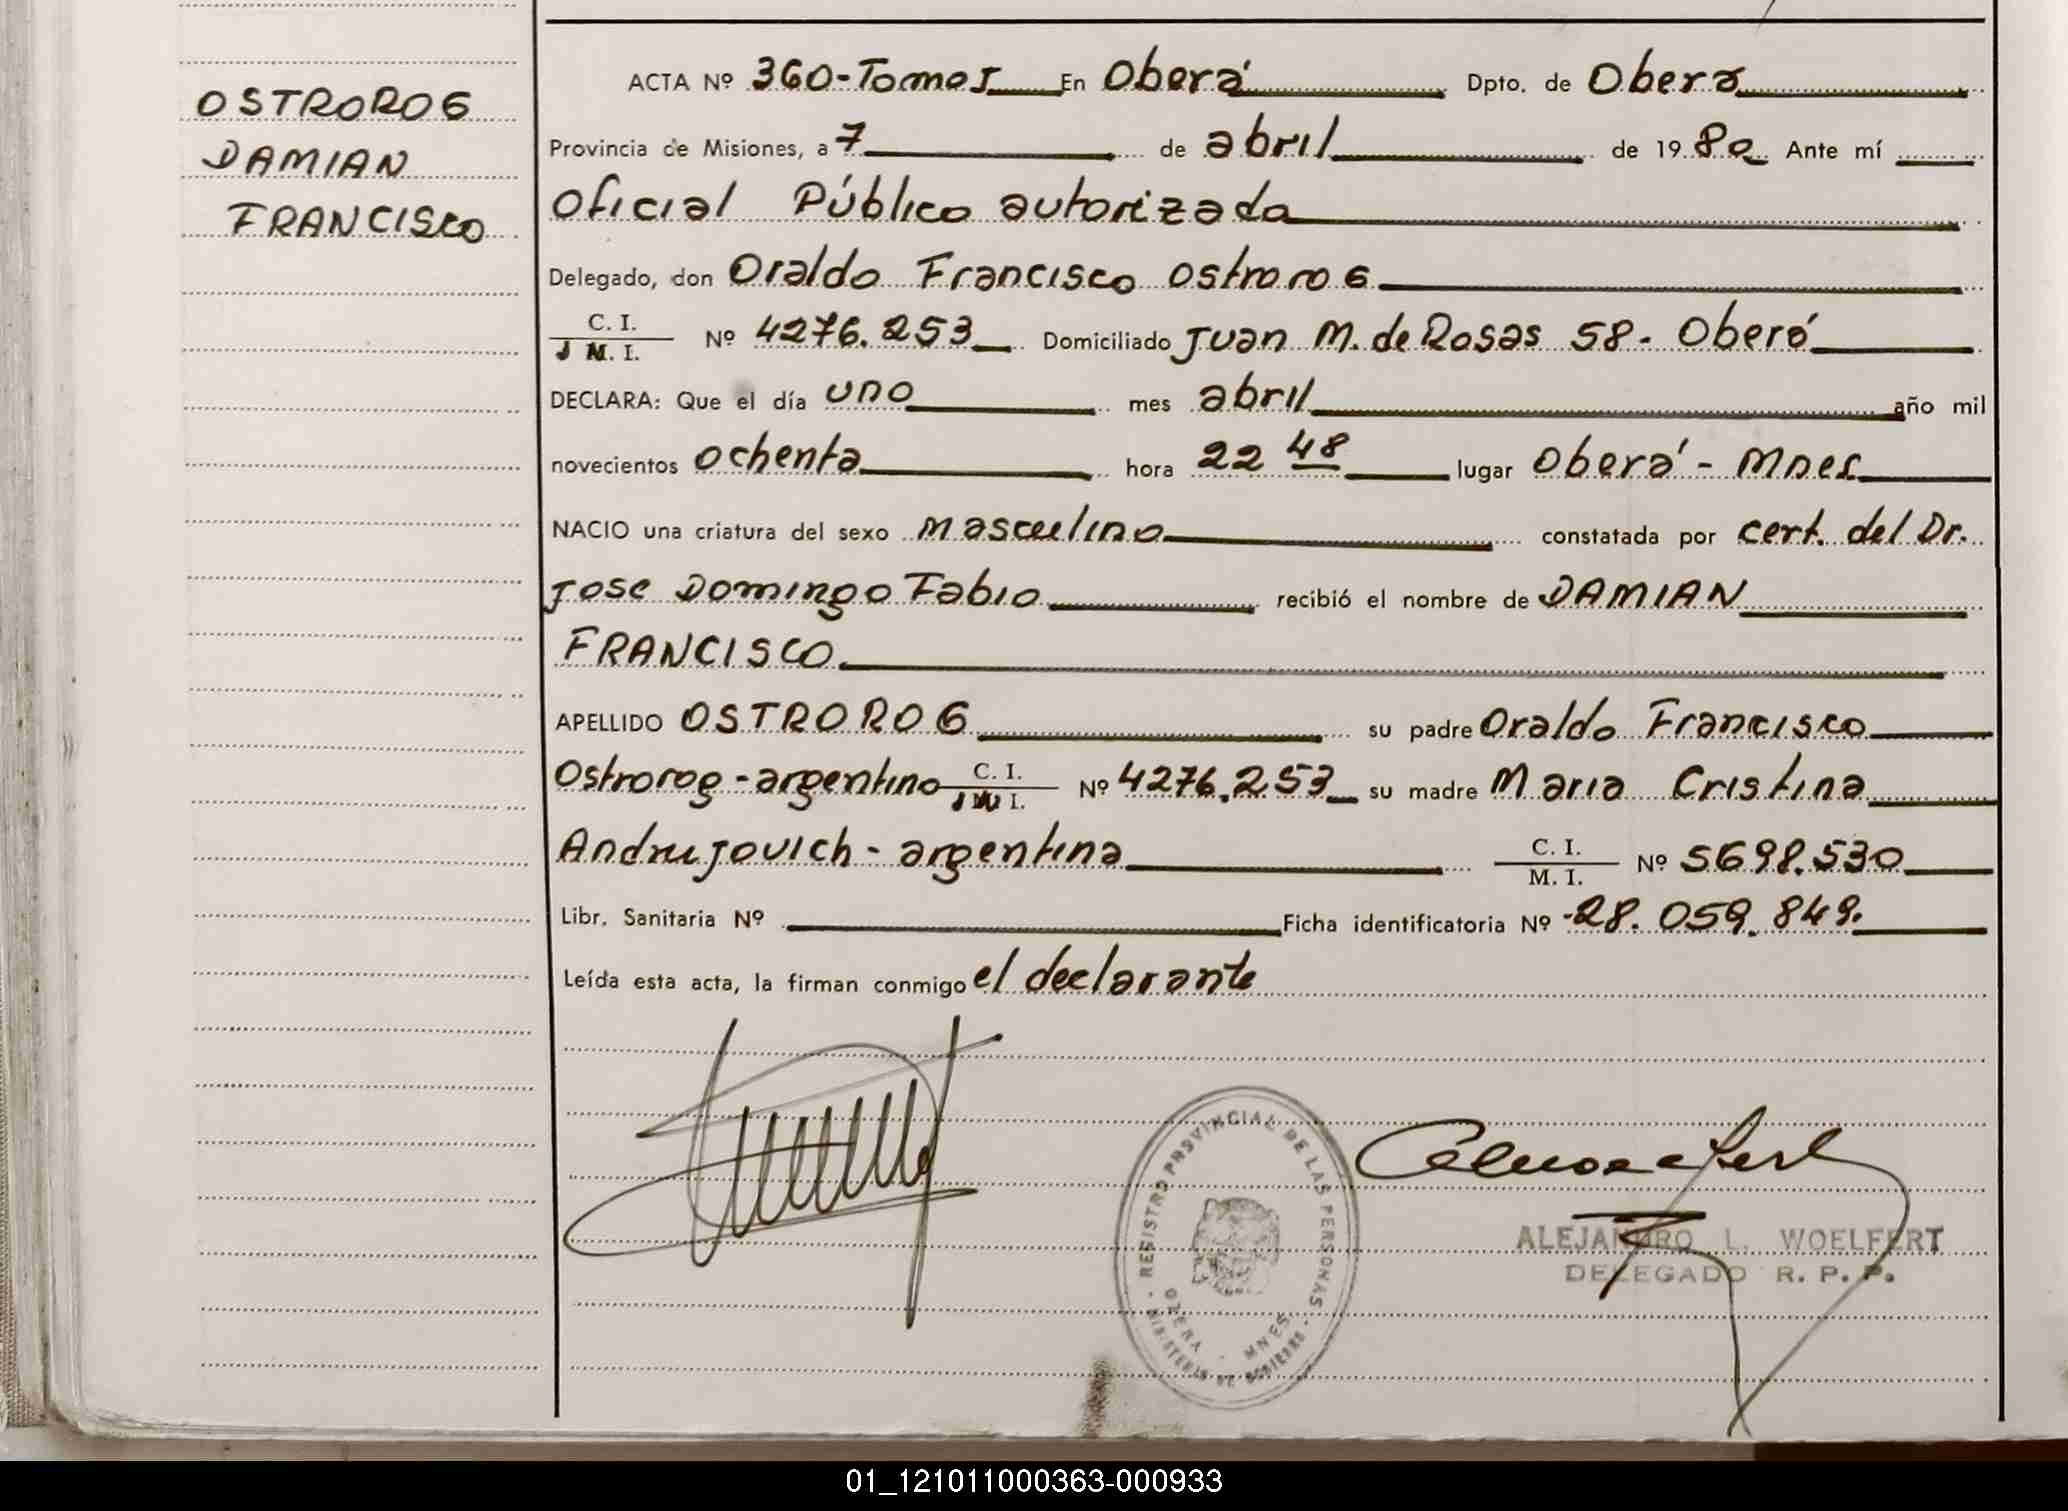 OSTROROG
DAMIAN
FRANCISCO
ACTA Nº 360-Tomo I En Oberá Dpto. de Oberá
Provincia de Misiones, a 7 de abril de 1980 Ante mí
Oficial Público autorizado
Delegado, don Oraldo Francisco Ostrorog
C. I.
M. I. Nº 4276.253 Domiciliado Juan M. de Rosas 58- Oberá
DECLARA: Que el día uno mes abril año mil
novecientos ochenta hora 22 48 lugar Oberá - Mnes
NACIO una criatura del sexo masculino constatada por cert. del Dr.
Jose Domingo Fabio recibió el nombre de DAMIAN
FRANCISCO
APELLIDO OSTROROG su padre Oraldo Francisco
Ostrorog - argentino C. I. M. I. Nº 4276.253 su madre Maria Cristina
Andrujovich - argentina C. I. M. I. Nº 5698.530
Libr. Sanitaria Nº Ficha identificatoria Nº 28.059.849.
Leída esta acta, la firman conmigo el declarante
REGISTRO PROVINCIAL DE LAS PERSONAS
OBERA - MNES.
MINISTERIO DE GOBIERNO
ALEJANDRO L. WOELFERT
DELEGADO R. P. P.
01_121011000363-000933